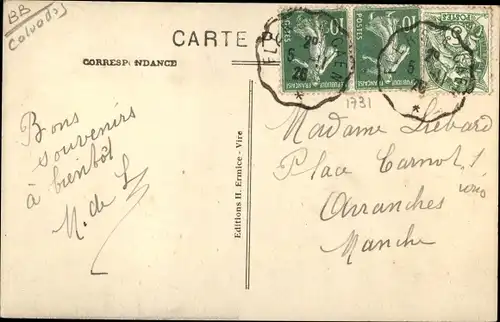 BB
Calvados
CARTE
CORRESPONDANCE
10
POSTES
REPUBLIQUE FRANÇAISE
10
POSTES
REPUBLIQUE FRANÇAISE
POSTES
2º
5 -1
26
*
2º
5 -1
26
*
1731
Bons
souvenirs
à bientôt
M. de L
Editions H. Ermice - Vire
Madame Liébard
Place Carnot,
Avranches
Manche